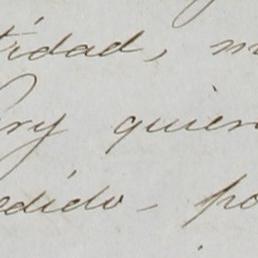 tidad, m
ry quien
edido - po